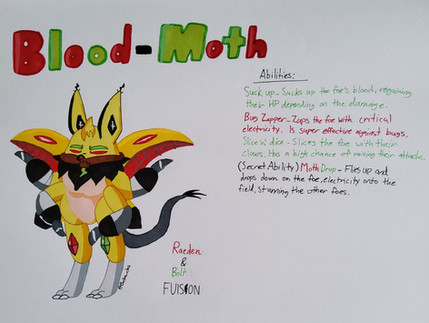 Blood-Moth
Abilities:
Suck up - Sucks up the foe's blood, regaining
their HP depending on the damage.
Bug Zapper - Zaps the foe with critical
electricity. Is super effective against bugs.
Slice n' dice - Slices the foe with their
claws. Has a high chance of missing their attacks.
(Secret Ability) Moth Drop - Flies up and
drops down on the foe, electricity onto the
field, stunning the other foes.
Raeden
&
Bolt
FUISION